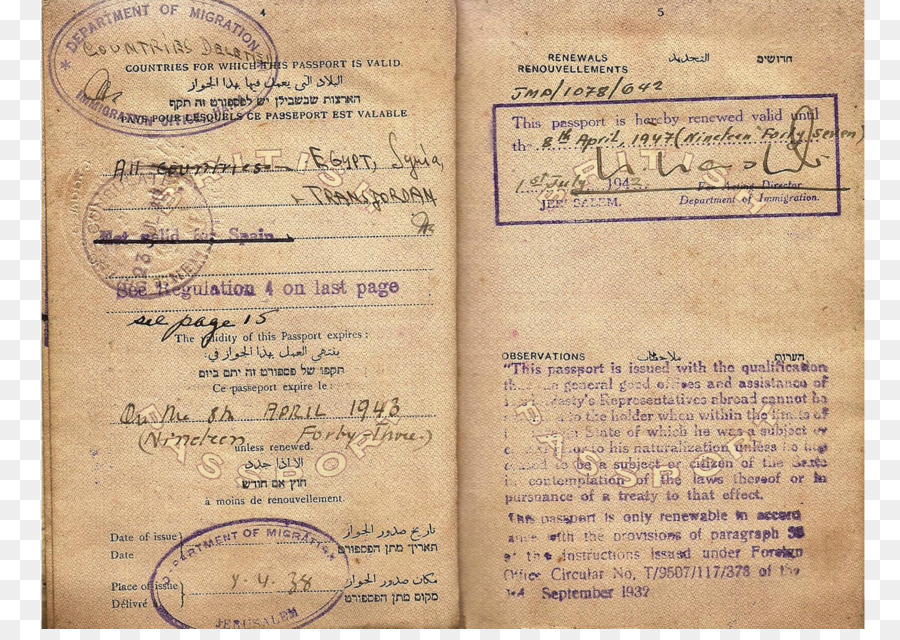 4
DEPARTMENT OF MIGRATION
COUNTRIES
COUNTRIES FOR WHICH THIS PASSPORT IS VALID.
البلاد التي يعمل فيها بهذا الجواز
הארצות שבשבילן יש לפספורט זה תקף
PAYS POUR LESQUELS CE PASSEPORT EST VALABLE
IMMIGRATION
All countries EGYPT, Syria,
TRANSJORDAN
Not valid for Spain
See Regulation 4 on last page
see page 15
The validity of this Passport expires:
ينتهي العمل بهذا الجواز في:
תקפו של פספורט זה יתם ביום
Ce passeport expire le:
On the 8th APRIL 1943
(Nineteen Forty Three.)
unless renewed.
الا اذا جدد
חוץ אם חודש
à moins de renouvellement.
Date of issue تاريخ صدور الجواز
Date תאריך מתן הפספורט
DEPARTMENT OF MIGRATION
Place of issue 9.4.38 مكان صدور الجواز
Délivré à מקום מתן הפספורט
JERUSALEM
5
RENEWALS التجديد חדושים
RENOUVELLEMENTS
JMA/1078/642
This passport is hereby renewed valid until
the 8th April, 1947 (Nineteen Forty Seven)
1st July 1942. Director
JERUSALEM. Department of Immigration.
OBSERVATIONS ملاحظات הערות
"This passport is issued with the qualification
that the general good offices and assistance of
Majesty's Representatives abroad cannot be
to the holder when within the limits of
State of which he was a subject or
prior to his naturalization unless he has
ceased to be a subject or citizen of the State
in contemplation of the laws thereof or in
pursuance of a treaty to that effect.
This passport is only renewable in accord
ance with the provisions of paragraph
of the Instructions issued under Foreign
Office Circular No, T/9507/117/378 of the
September 1932
BRITISH
PASSPORT
BRITISH
PASSPORT